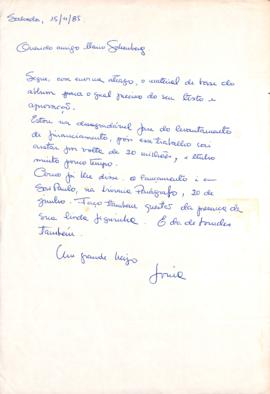 Salvador, 15/4/85
Querido amigo Mario Schenberg
Segue, com enorme atraso, o material de base do
album para o qual preciso do seu texto e
aprovação.
Estou na desagradável fase do levantamento
de financiamento, pois esse trabalho vai
custar por volta de 20 milhões, e tenho
muito pouco tempo.
Como já lhe disse o lançamento é em
São Paulo, na livraria Parágrafo, 20 de
junho. Faço também questão da presença da
sua linda figurinha. E da de Lourdes
também.
Um grande beijo
Sonia